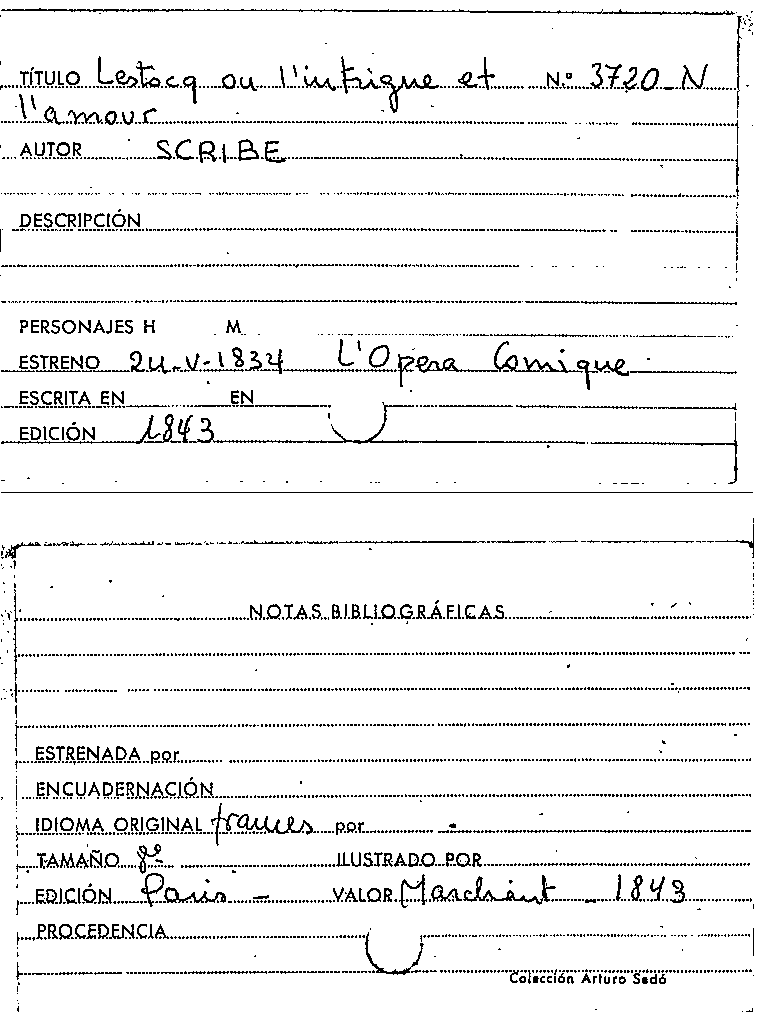 TÍTULO Lestocq ou l'intrigue et N.º 3720-N
l'amour
AUTOR SCRIBE
DESCRIPCIÓN
PERSONAJES H M
ESTRENO 24-V-1834 L'Opera Comique
ESCRITA EN EN
EDICIÓN 1843
NOTAS BIBLIOGRÁFICAS
ESTRENADA por
ENCUADERNACIÓN
IDIOMA ORIGINAL frances por
TAMAÑO 8º ILUSTRADO POR
EDICIÓN Paris - VALOR Marchant - 1843
PROCEDENCIA
Colección Arturo Sedó